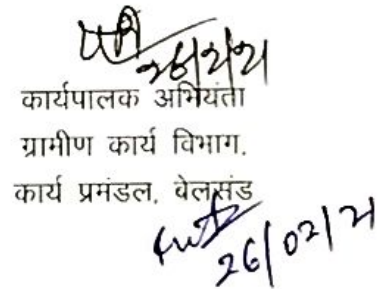 26/2/21
कार्यपालक अभियंता
ग्रामीण कार्य विभाग.
कार्य प्रमंडल, बेलसंड
26/02/21